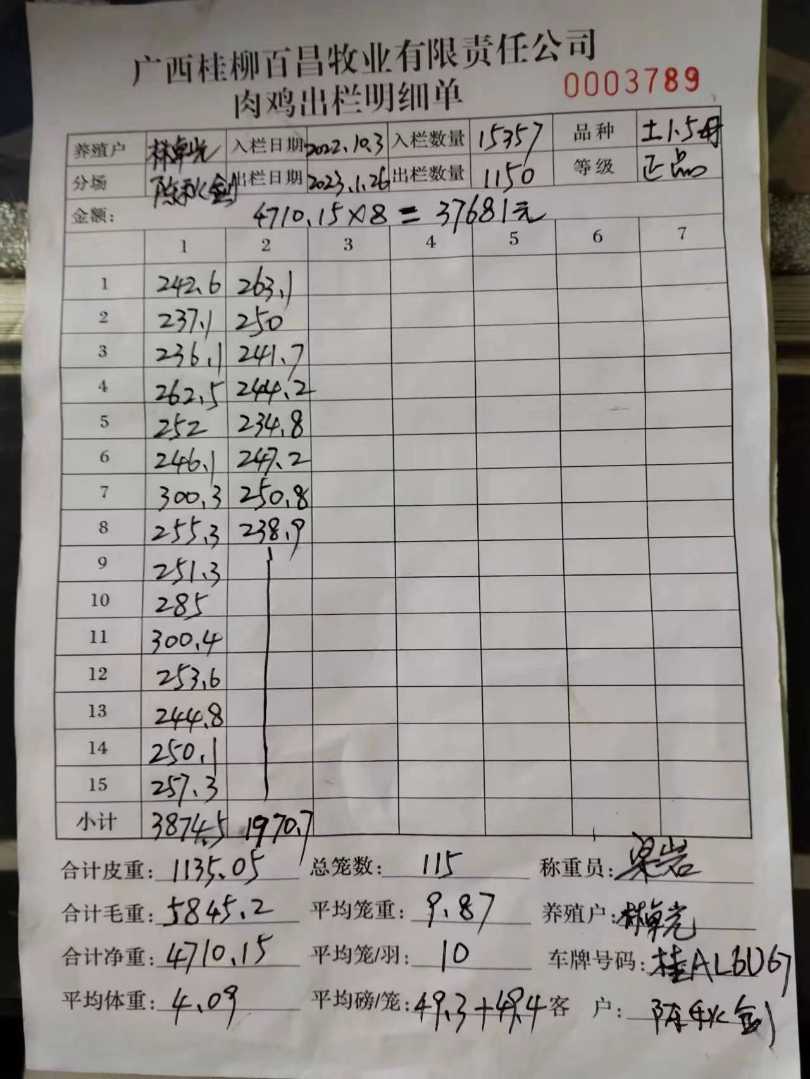 广西桂柳百昌牧业有限责任公司
肉鸡出栏明细单 0003789
养殖户 林卓光 入栏日期 2022.10.3 入栏数量 15357 品种 土1.5母
分场 陈秋金 出栏日期 2023.1.26 出栏数量 1150 等级 正品
金额: 4710.15×8=37681元
1 2 3 4 5 6 7
1 242.6 263.1
2 237.1 250
3 236.1 241.7
4 262.5 244.2
5 252 234.8
6 246.1 247.2
7 300.3 250.8
8 255.3 238.9
9 251.3
10 285
11 300.4
12 253.6
13 244.8
14 250.1
15 257.3
小计 3874.5 1970.7
合计皮重: 1135.05 总笼数: 115 称重员: 梁岩
合计毛重: 5845.2 平均笼重: 9.87 养殖户: 林卓光
合计净重: 4710.15 平均笼/羽: 10 车牌号码: 桂AL6U67
平均体重: 4.09 平均磅/笼: 49.3+49.4 客 户: